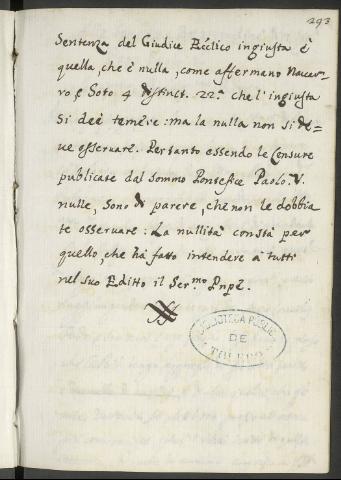 293
Sentenza del Giudice Ecc.lico ingiusta è
quella, che è nulla, come affermano Nauer-
ro, e Soto 4 distinct. 22.ª che l'ingiusta
si deè temere: ma la nulla non si de=
ue osseruare. Per tanto essendo le Censure
publicate dal sommo Pontefice Paolo. V.
nulle, sono di parere, che non le dobbia
te osseruare: La nullità constà per
quello, che hà fatto intendere à tutti
nel suo Editto il Ser.mo Pnpe.
BIBLIOTECA PUBLIC
DE
TOLEDO